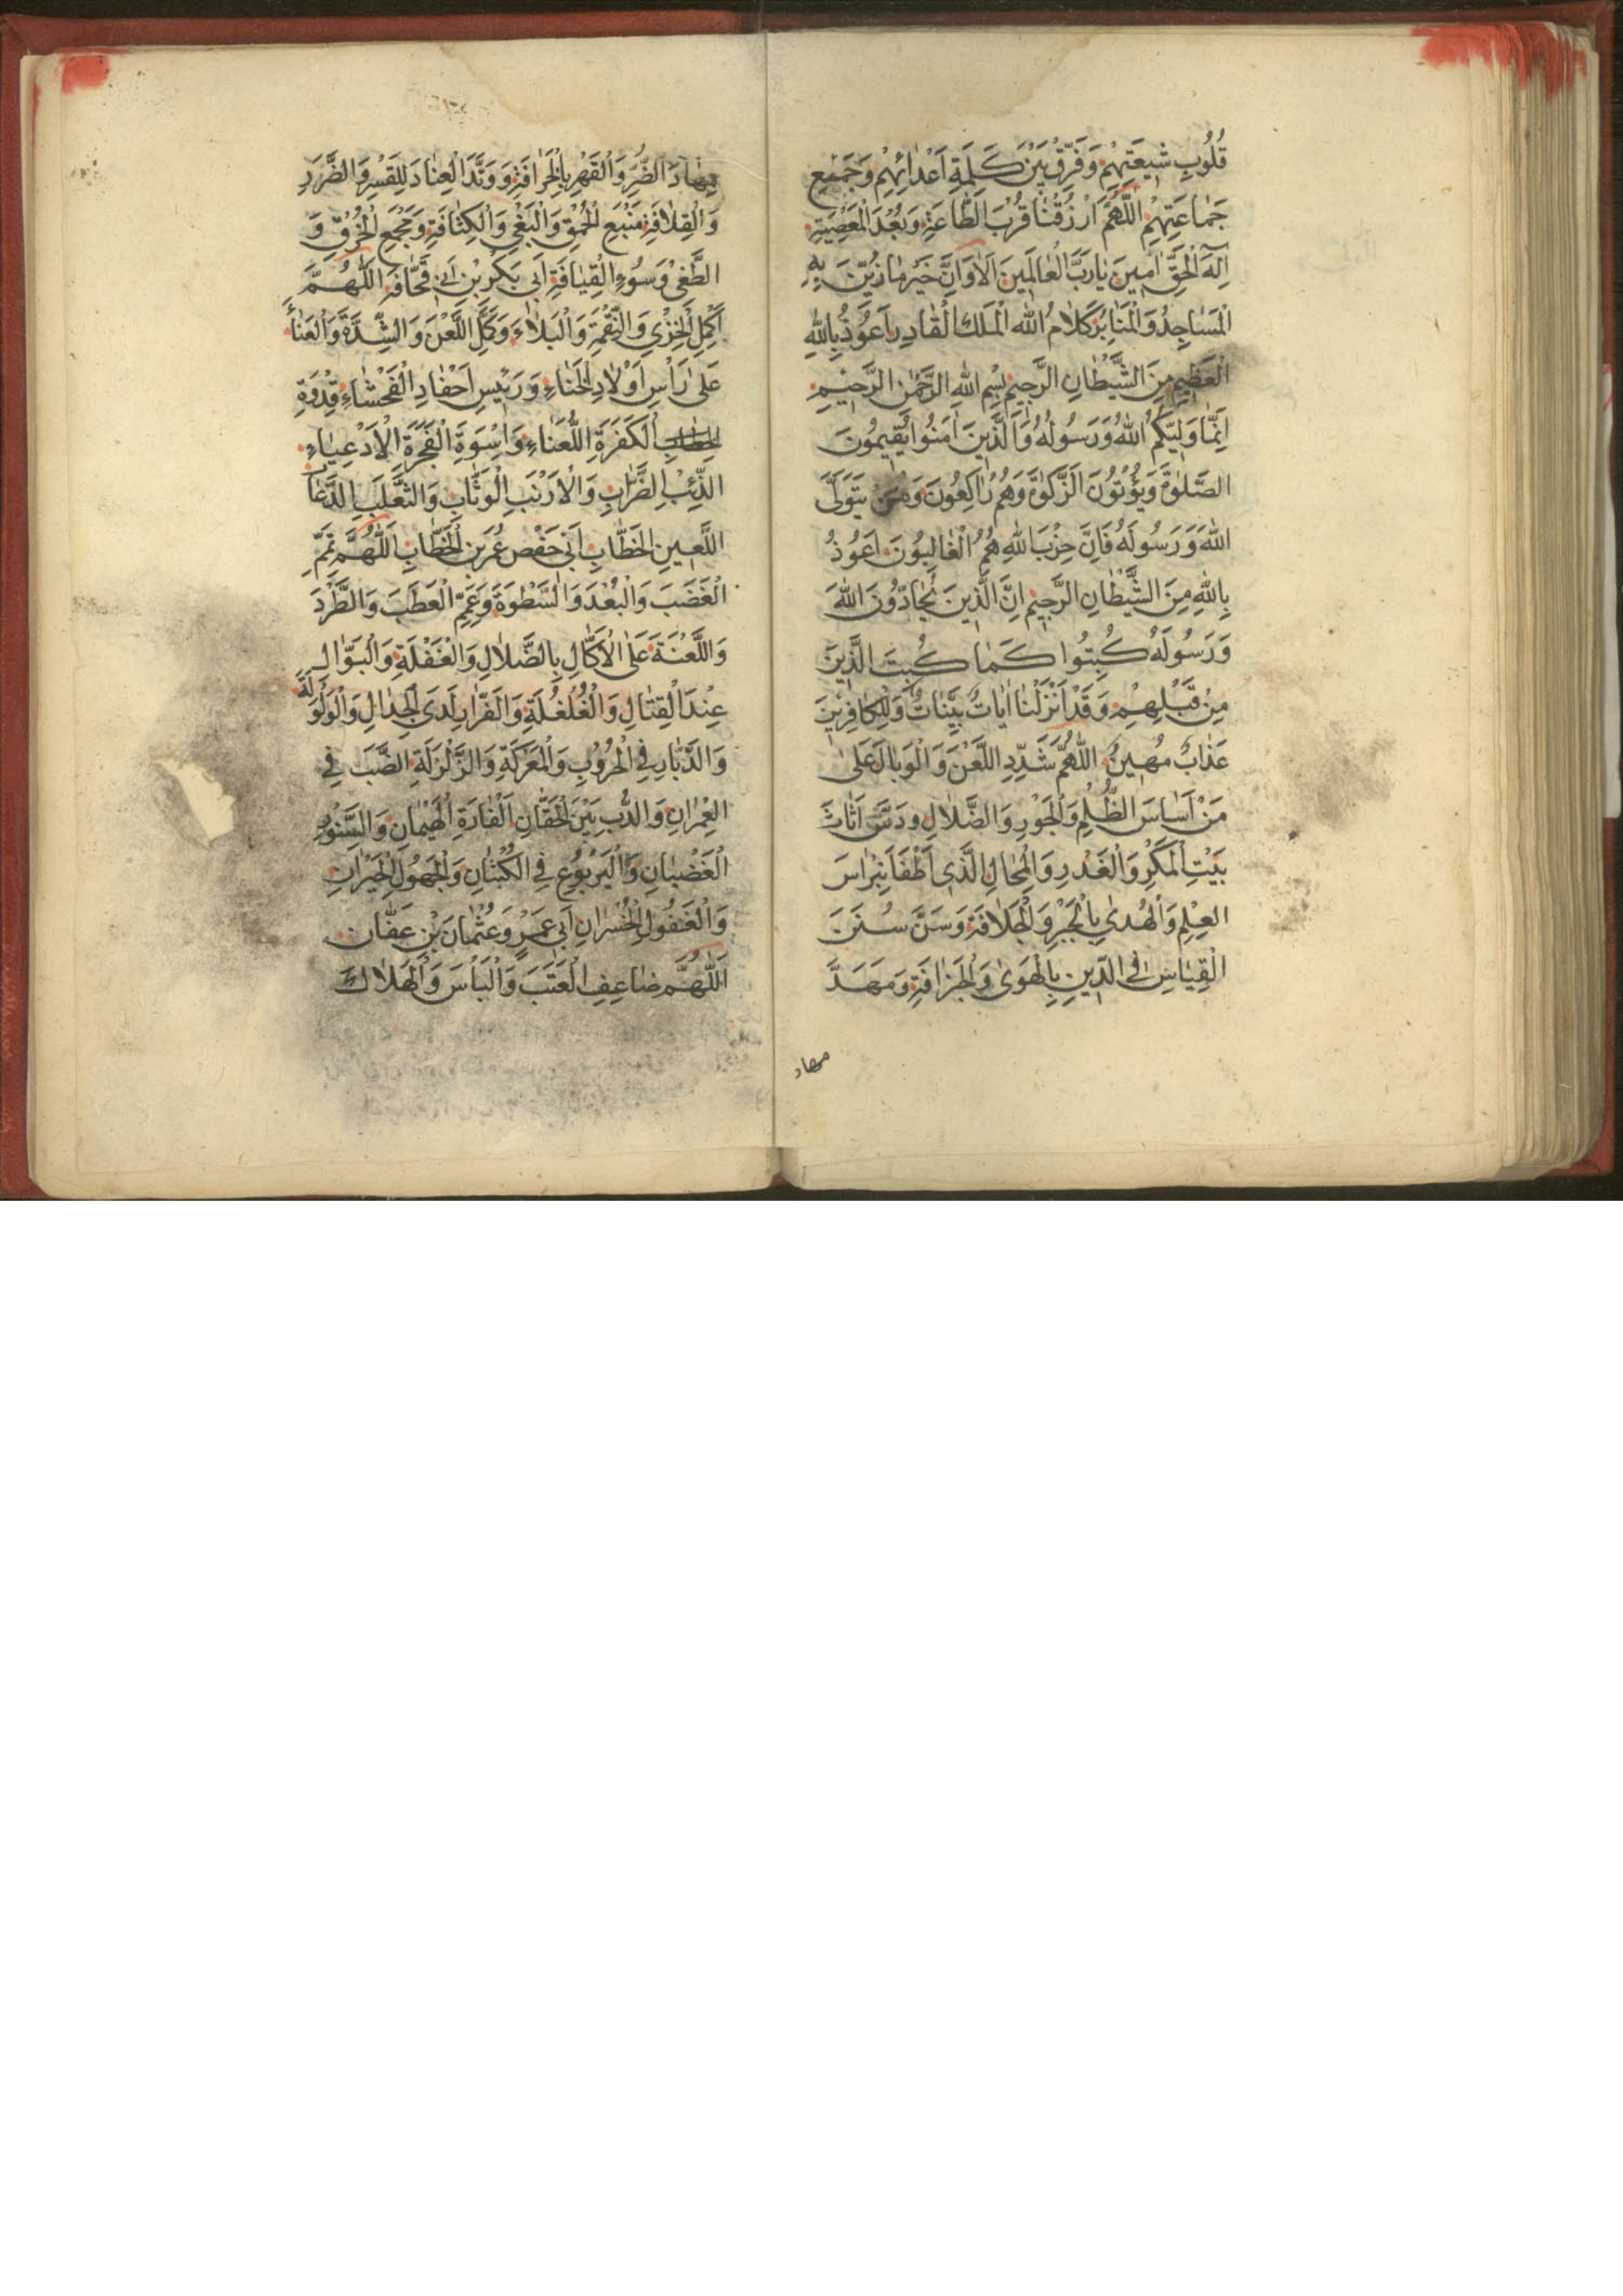 قُلُوبِ شِيعَتِهِمْ وَفَرِّقْ بَيْنَ كَلِمَةِ اَعْدٰائِهِمْ وَجَمِيْعِ
جَمٰاعَتِهِمْ اَللّٰهُمَّ ارْزُقْنٰا قُرْبَ الطّٰاعَةِ وَبُعْدَ الْمَعْصِيَةِ
اِلٰهَ الْحَقِّ اٰمِينَ يٰارَبَّ الْعٰالَمِينَ اَلاٰ وَاِنَّ خَيْرَ مٰا زُيِّنَ بِهِ
الْمَسٰاجِدُ وَالْمَنٰابِرُ كَلاٰمُ اللّٰه الْمَلِك الْقٰادِرِ اَعُوذُ بِاللّٰهِ
الْعَظِيمِ مِنَ الشَّيْطٰانِ الرَّجِيمِ بِسْمِ اللّٰهِ الرَّحْمٰنِ الرَّحِيْمِ
اِنَّمٰا وَلِيُّكُمُ اللّٰهُ وَرَسُولُهُ وَالَّذِينَ اٰمَنُوا يُقِيمُونَ
الصَّلوٰةَ وَيُؤْتُونَ الزَّكوٰةَ وَهُمْ رٰاكِعُونَ وَمَنْ يَتَوَلَّ
اللّٰهَ وَرَسُولَهُ فَاِنَّ حِزْبَ اللّٰهِ هُمُ الْغٰالِبُونَ اَعُوذُ
بِاللّٰهِ مِنَ الشَّيْطٰانِ الرَّجِيمِ اِنَّ الَّذِينَ يُحٰادُّونَ اللّٰهَ
وَرَسُولَهُ كُبِتُوا كَمٰا كُبِتَ الَّذِينَ
مِنْ قَبْلِهِمْ وَقَدْ اَنْزَلْنٰا اٰيٰاتٍ بَيِّنٰاتٍ وَلِلْكٰافِرِينَ
عَذٰابٌ مُهِينٌ اَللّٰهُمَّ شَدِّدِ اللَّعْنَ وَالْوَبٰالَ عَلىٰ
مَنْ اَسٰاسَ الظُّلْمِ وَالْجَوْرِ وَالضَّلاٰلِ وَدَسَّ اَثٰاثَ
بَيْتِ الْمَكْرِ وَالْغَدْرِ وَالْمِحٰالِ الَّذِى اَطْفَاَ نِبْرٰاسَ
الْعِلْمِ وَالْهُدىٰ بِالْجَبْرِ وَالْجَلاٰفَةِ وَسَنَّ سُنَنَ
الْقِيٰاسِ فِى الدِّينِ بِالْهَوىٰ وَالْجَزٰافَةِ وَمَهَّدَ
مهاد
مِهٰادَ الضُّرِّ وَالْقَهْرِ بِالْخَرٰافَةِ وَوَتَّدَ الْعِنٰادَ لِلْقَسْرِ وَالضَّرَرِ
وَالْقِلاٰفَةِ مَنْبَعِ الْحُمْقِ وَالْبَغْىِ وَالْكِثٰافَةِ وَمَجْمَعِ الْخُرْقِ وَ
الطَّغْىِ وَسُوءِ الْقِيٰافَةِ اَبى بَكْرِ بْنِ اَبى قُحٰافَه اَللّٰهُمَّ
اَكْمِلِ الْخِزْيَ وَالنِّقْمَةَ وَالْبَلاٰءَ وَكَمِّلِ اللَّعْنَ وَالشِّدَّةَ وَالْعَنٰاءَ
عَلىٰ رَأْسِ اَوْلاٰدِ الْخَنٰاءِ وَرَئِيسِ اَحْفٰادِ الْفَحْشٰاءِ قِدْوَةِ
الْكَفَرَةِ اللُّعَنٰاءِ وَاِسْوَةِ الْفَجَرَةِ الْاَدْعِيٰاءِ
الذِّئْبِ الضَّرّٰابِ وَالْاَرْنَبِ الْوَثّٰابِ وَالثَّعْلَبِ الدَّعّٰابِ
اللَّعِينِ الْخَطّٰابِ اَبى حَفْص عُمَرَ بْنِ الْخَطّٰابِ اَللّٰهُمَّ تَمِّمِ
الْغَضَبَ وَالْبُعْدَ وَالسَّطْوَةَ وَعَمِّمِ الْعَطَبَ وَالطَّرْدَ
وَاللَّعْنَةَ عَلَى الْاَكّٰالِ بِالضَّلاٰلِ وَالْغَفْلَةِ وَالْبَوّٰالِ
عِنْدَ الْقِتٰالِ وَالْغُلْغُلَةِ وَالْفَرّٰارِ لَدَى الْجِدٰالِ وَالْوَلْوَلَةِ
وَالدَّبّٰارِ فِى الْحُرُوْبِ وَالْمَعْرَكَةِ وَالزَّلْزَلَةِ الضَّبِّ فِى
الْعِمْرٰانِ وَالدُّبِّ بَيْنَ الْحُقّٰانِ الْفٰارَةِ الْهَيْمٰانِ وَالسِّنَّوْرِ
الْغَضْبٰانِ وَالْيَرْبُوعِ فِى الْكُثْبٰانِ وَالْجَهُولِ الْحَيْرٰانِ
وَالْغَفُولِ الْخُسْرٰانِ اَبى عَمْرٍ وَعُثْمٰانَ بْنِ عَفّٰان
اَللّٰهُمَّ ضٰاعِفِ الْعَتَبَ وَالْبَأْسَ وَالْهَلاٰكَ